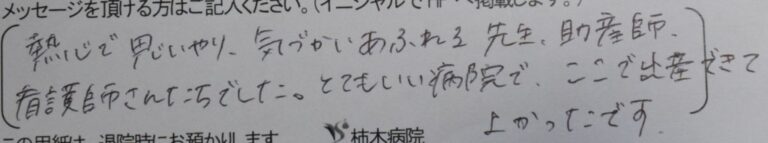 メッセージを頂ける方はご記入ください。(イニシャルでHPへ掲載します。)
熱心で思いやり、気づかいあふれる先生、助産師、
看護師さんたちでした。とてもいい病院で、ここで出産できて
よかったです。
この用紙は、退院時にお預かりします 柿木病院